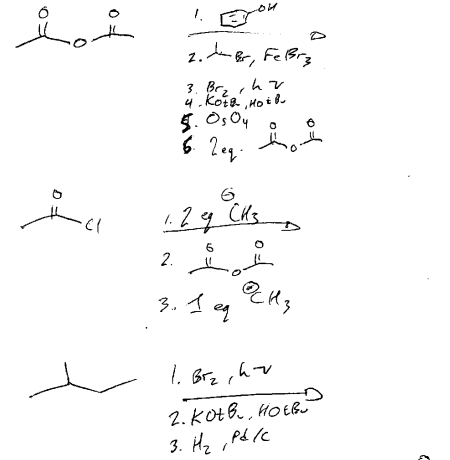 O O
O
1. OH
2. Br, FeBr3
3. Br2, hν
4. KOtBu, HOtBu
5. OsO4
6. 2eq. O O
O
O
Cl
1. 2 eq ⊖CH3
2. O O
O
3. 1 eq ⊖CH3
1. Br2, hν
2. KOtBu, HOtBu
3. H2, Pd/C